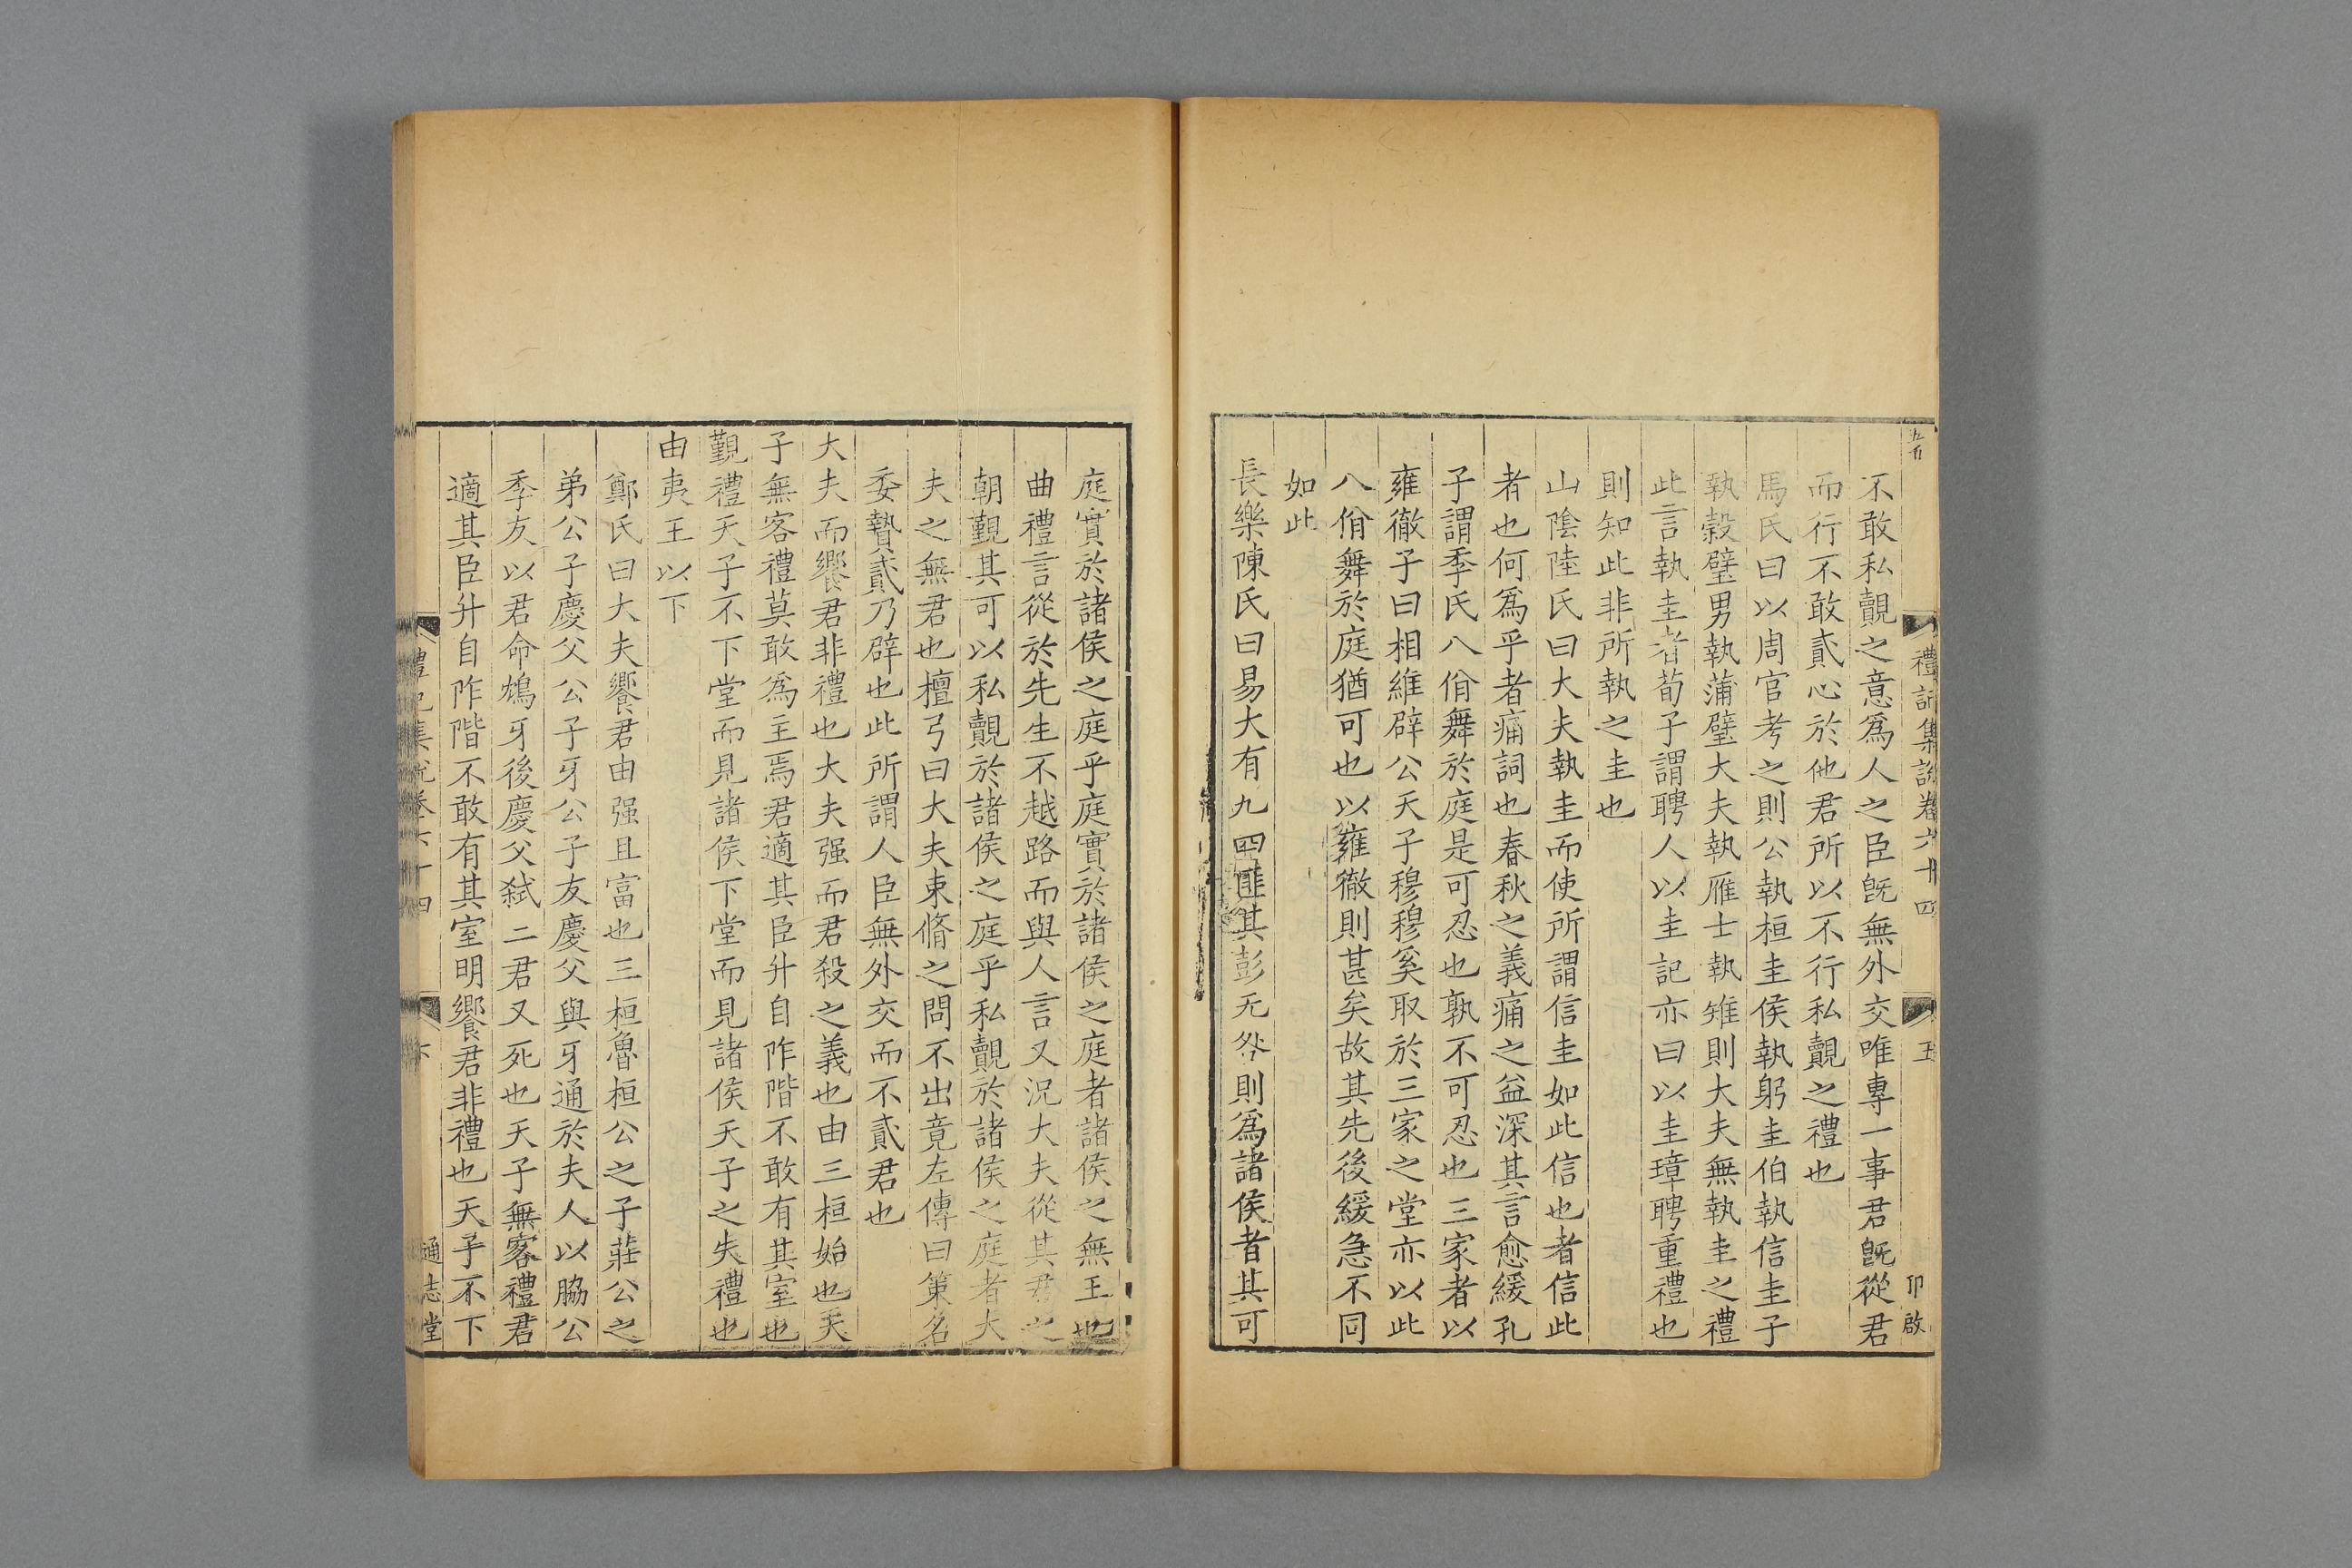 禮記集說卷六十四
五
不敢私覿之意爲人之臣旣無外交唯專一事君旣從君
而行不敢貳心於他君所以不行私覿之禮也
馬氏曰以周官考之則公執桓圭侯執躬圭伯執信圭子
執榖璧男執蒲璧大夫執雁士執雉則大夫無執圭之禮
此言執圭者荀子謂聘人以圭記亦曰以圭璋聘重禮也
則知此非所執之圭也
山陰陸氏曰大夫執圭而使所謂信圭如此信也者信此
者也何爲乎者痛詞也春秋之義痛之益深其言愈緩孔
子謂季氏八佾舞於庭是可忍也孰不可忍也三家者以
雍徹子曰相維辟公天子穆穆奚取於三家之堂亦以此
八佾舞於庭猶可也以雍徹則甚矣故其先後緩急不同
如此
長樂陳氏曰易大有九四匪其彭无咎則爲諸侯者其可
庭實於諸侯之庭乎庭實於諸侯之庭者諸侯之無王也
曲禮言從於先生不越路而與人言又況大夫從其君之
朝覲其可以私覿於諸侯之庭乎私覿於諸侯之庭者大
夫之無君也檀弓曰大夫束脩之問不出竟左傳曰策名
委贄貳乃辟也此所謂人臣無外交而不貳君也
大夫而饗君非禮也大夫强而君殺之義也由三桓始也天
子無客禮莫敢爲主焉君適其臣升自阼階不敢有其室也
覲禮天子不下堂而見諸侯下堂而見諸侯天子之失禮也
由夷王以下
鄭氏曰大夫饗君由强且富也三桓魯桓公之子莊公之
弟公子慶父公子牙公子友慶父與牙通於夫人以脇公
季友以君命鴆牙後慶父弒二君又死也天子無客禮君
適其臣升自阼階不敢有其室明饗君非禮也天子不下
禮記集說卷六十四
通志堂